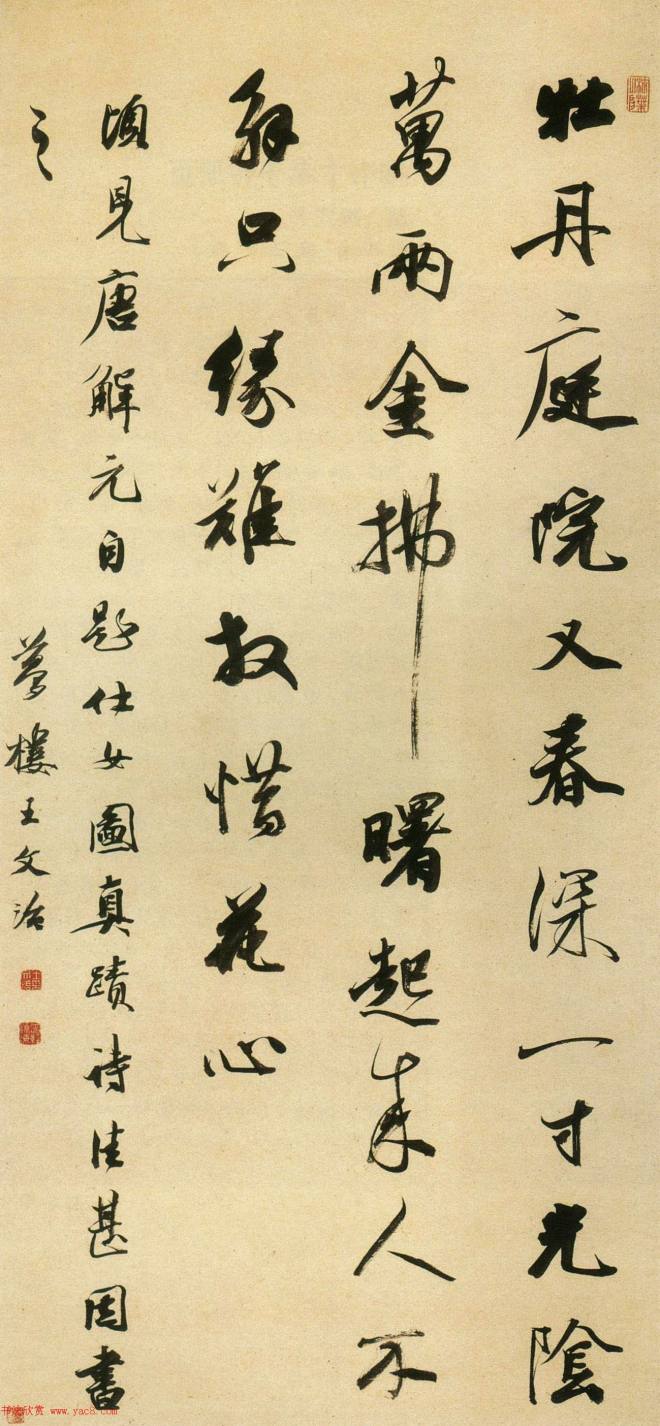 牡丹庭院又春深一寸光陰
萬兩金拂曙起來人不
解只緣難放惜花心
頃見唐解元自題仕女圖真蹟詩佳甚因書
之
夢樓王文治
书法欣赏 www.yac8.com